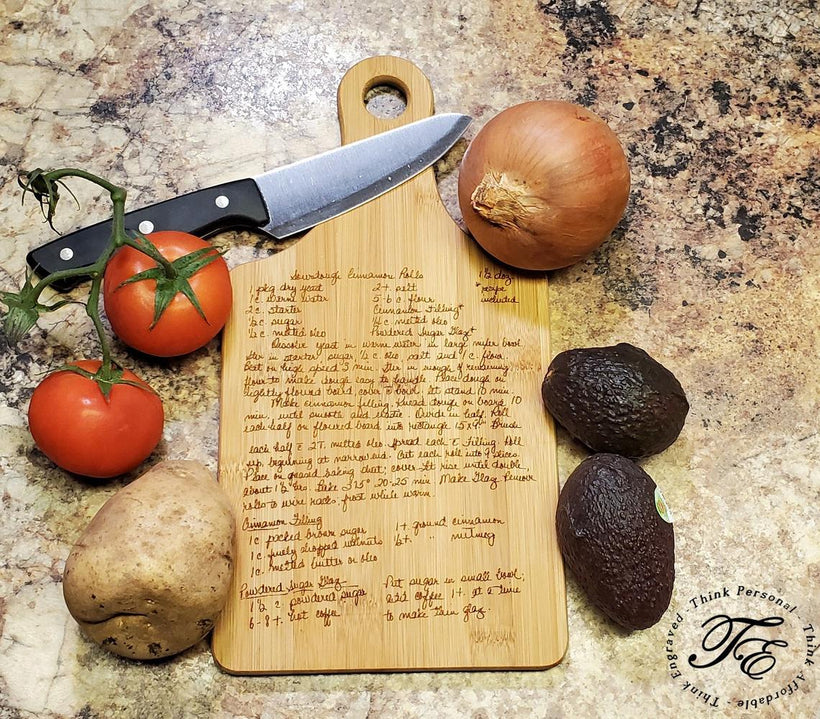 Sourdough Cinnamon Rolls 1½ doz
1 pkg dry yeast 2 t salt *recipe
1 c. warm water 5-6 c. flour included
2 c. starter Cinnamon Filling*
½ c. sugar ¼ c melted oleo
½ c. melted oleo Powdered Sugar Glaz*
Dissolve yeast in warm water in large mixer bowl.
Stir in starter, sugar, ½ c. oleo, salt and 1 c. flour.
Beat on high speed 3 min. Stir in enough of remaining
flour to make dough easy to handle. Place dough on
lightly floured board, cover c̄ bowl. Let stand 10 min.
Make cinnamon filling. Knead dough on board 10
min. until smooth and elastic. Divide in half. Roll
each half on floured board into rectangle 15x9". Brush
each half c̄ 2T. melted oleo. Spread each c̄ Filling. Roll
up, beginning at narrow end. Cut each roll into 9 slices.
Place on greased baking sheet; cover. Let rise until double,
about 1½ hrs. Bake 375° 20-25 min. Make Glaz. Remove
rolls to wire racks; frost while warm.
Cinnamon Filling
1 c packed brown sugar 1 t ground cinnamon
1 c. finely chopped walnuts ½ t. " nutmeg
1 c. melted butter or oleo
Powdered Sugar Glaz
1½ c. powdered sugar Put sugar in small bowl;
6-8 t. hot coffee add coffee 1 t. at a time
to make thin glaz.
TE
Think Personal - Think Affordable - Think Engraved